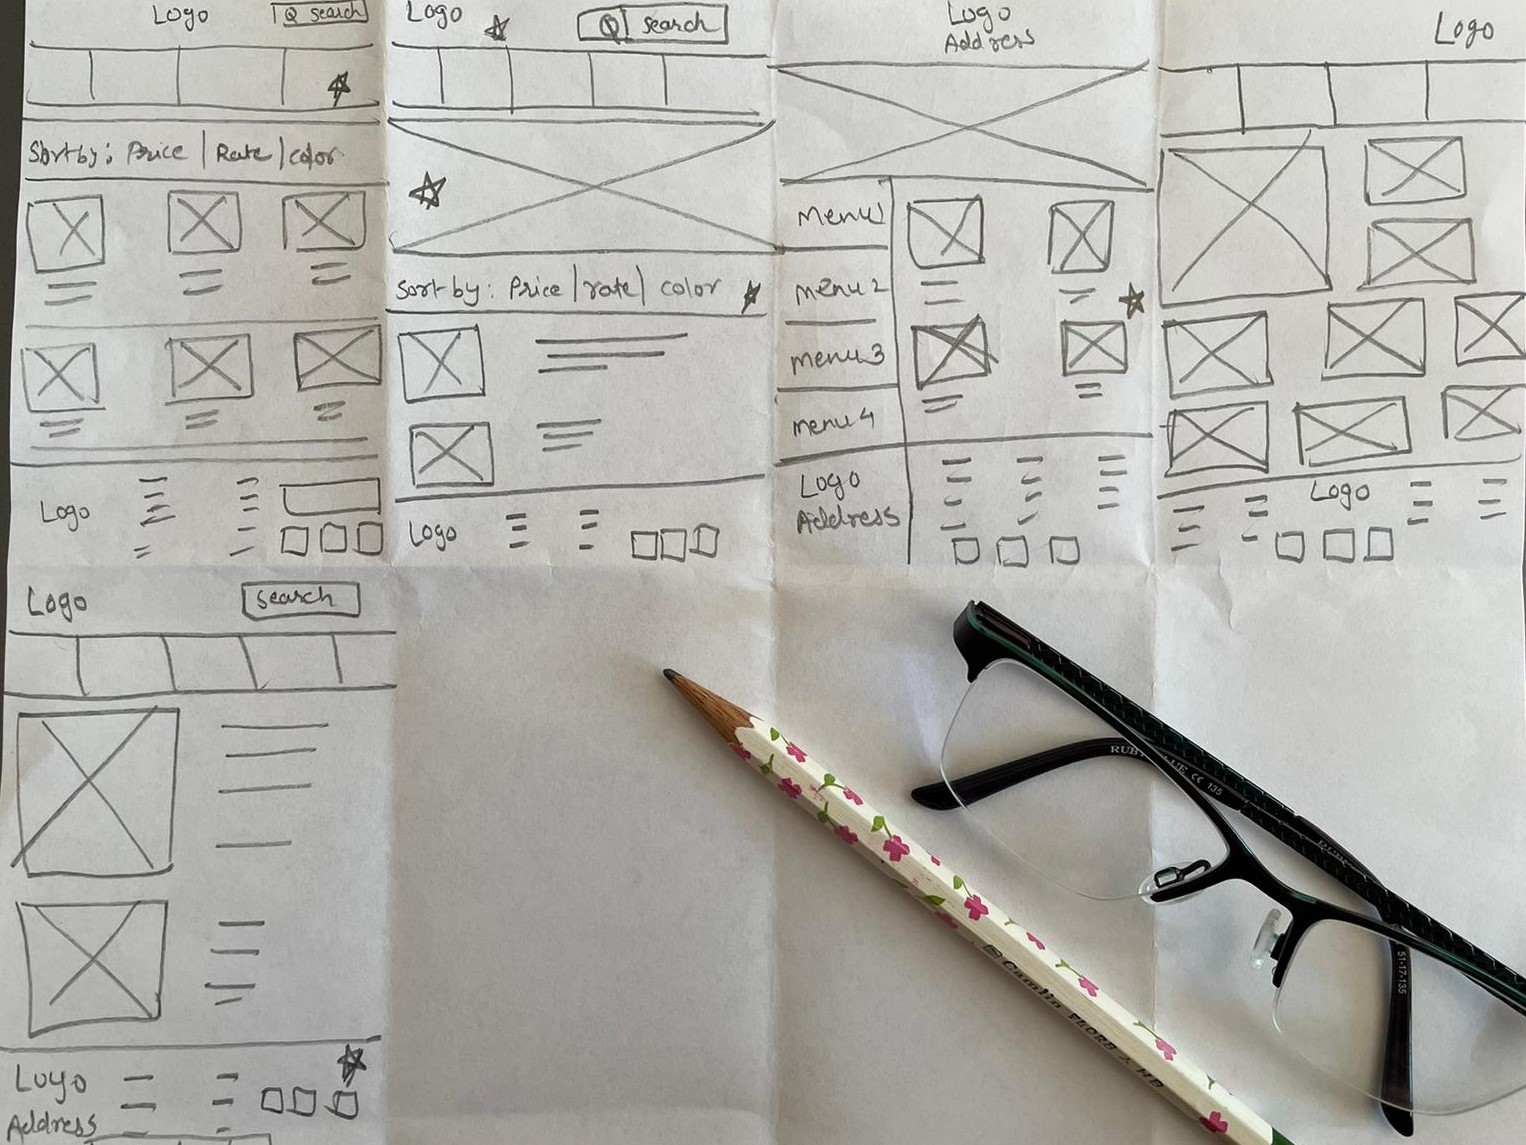 Logo
Q search
Sort by: Price | Rate | color
Logo
Logo
Q search
Sort by: Price | rate | color
Logo
Logo
Address
menu1
menu 2
menu 3
menu 4
Logo
Address
Logo
Logo
Logo
search
Logo
Address
RUBY
CE 135
51-17-135
Camlin FLORA HB